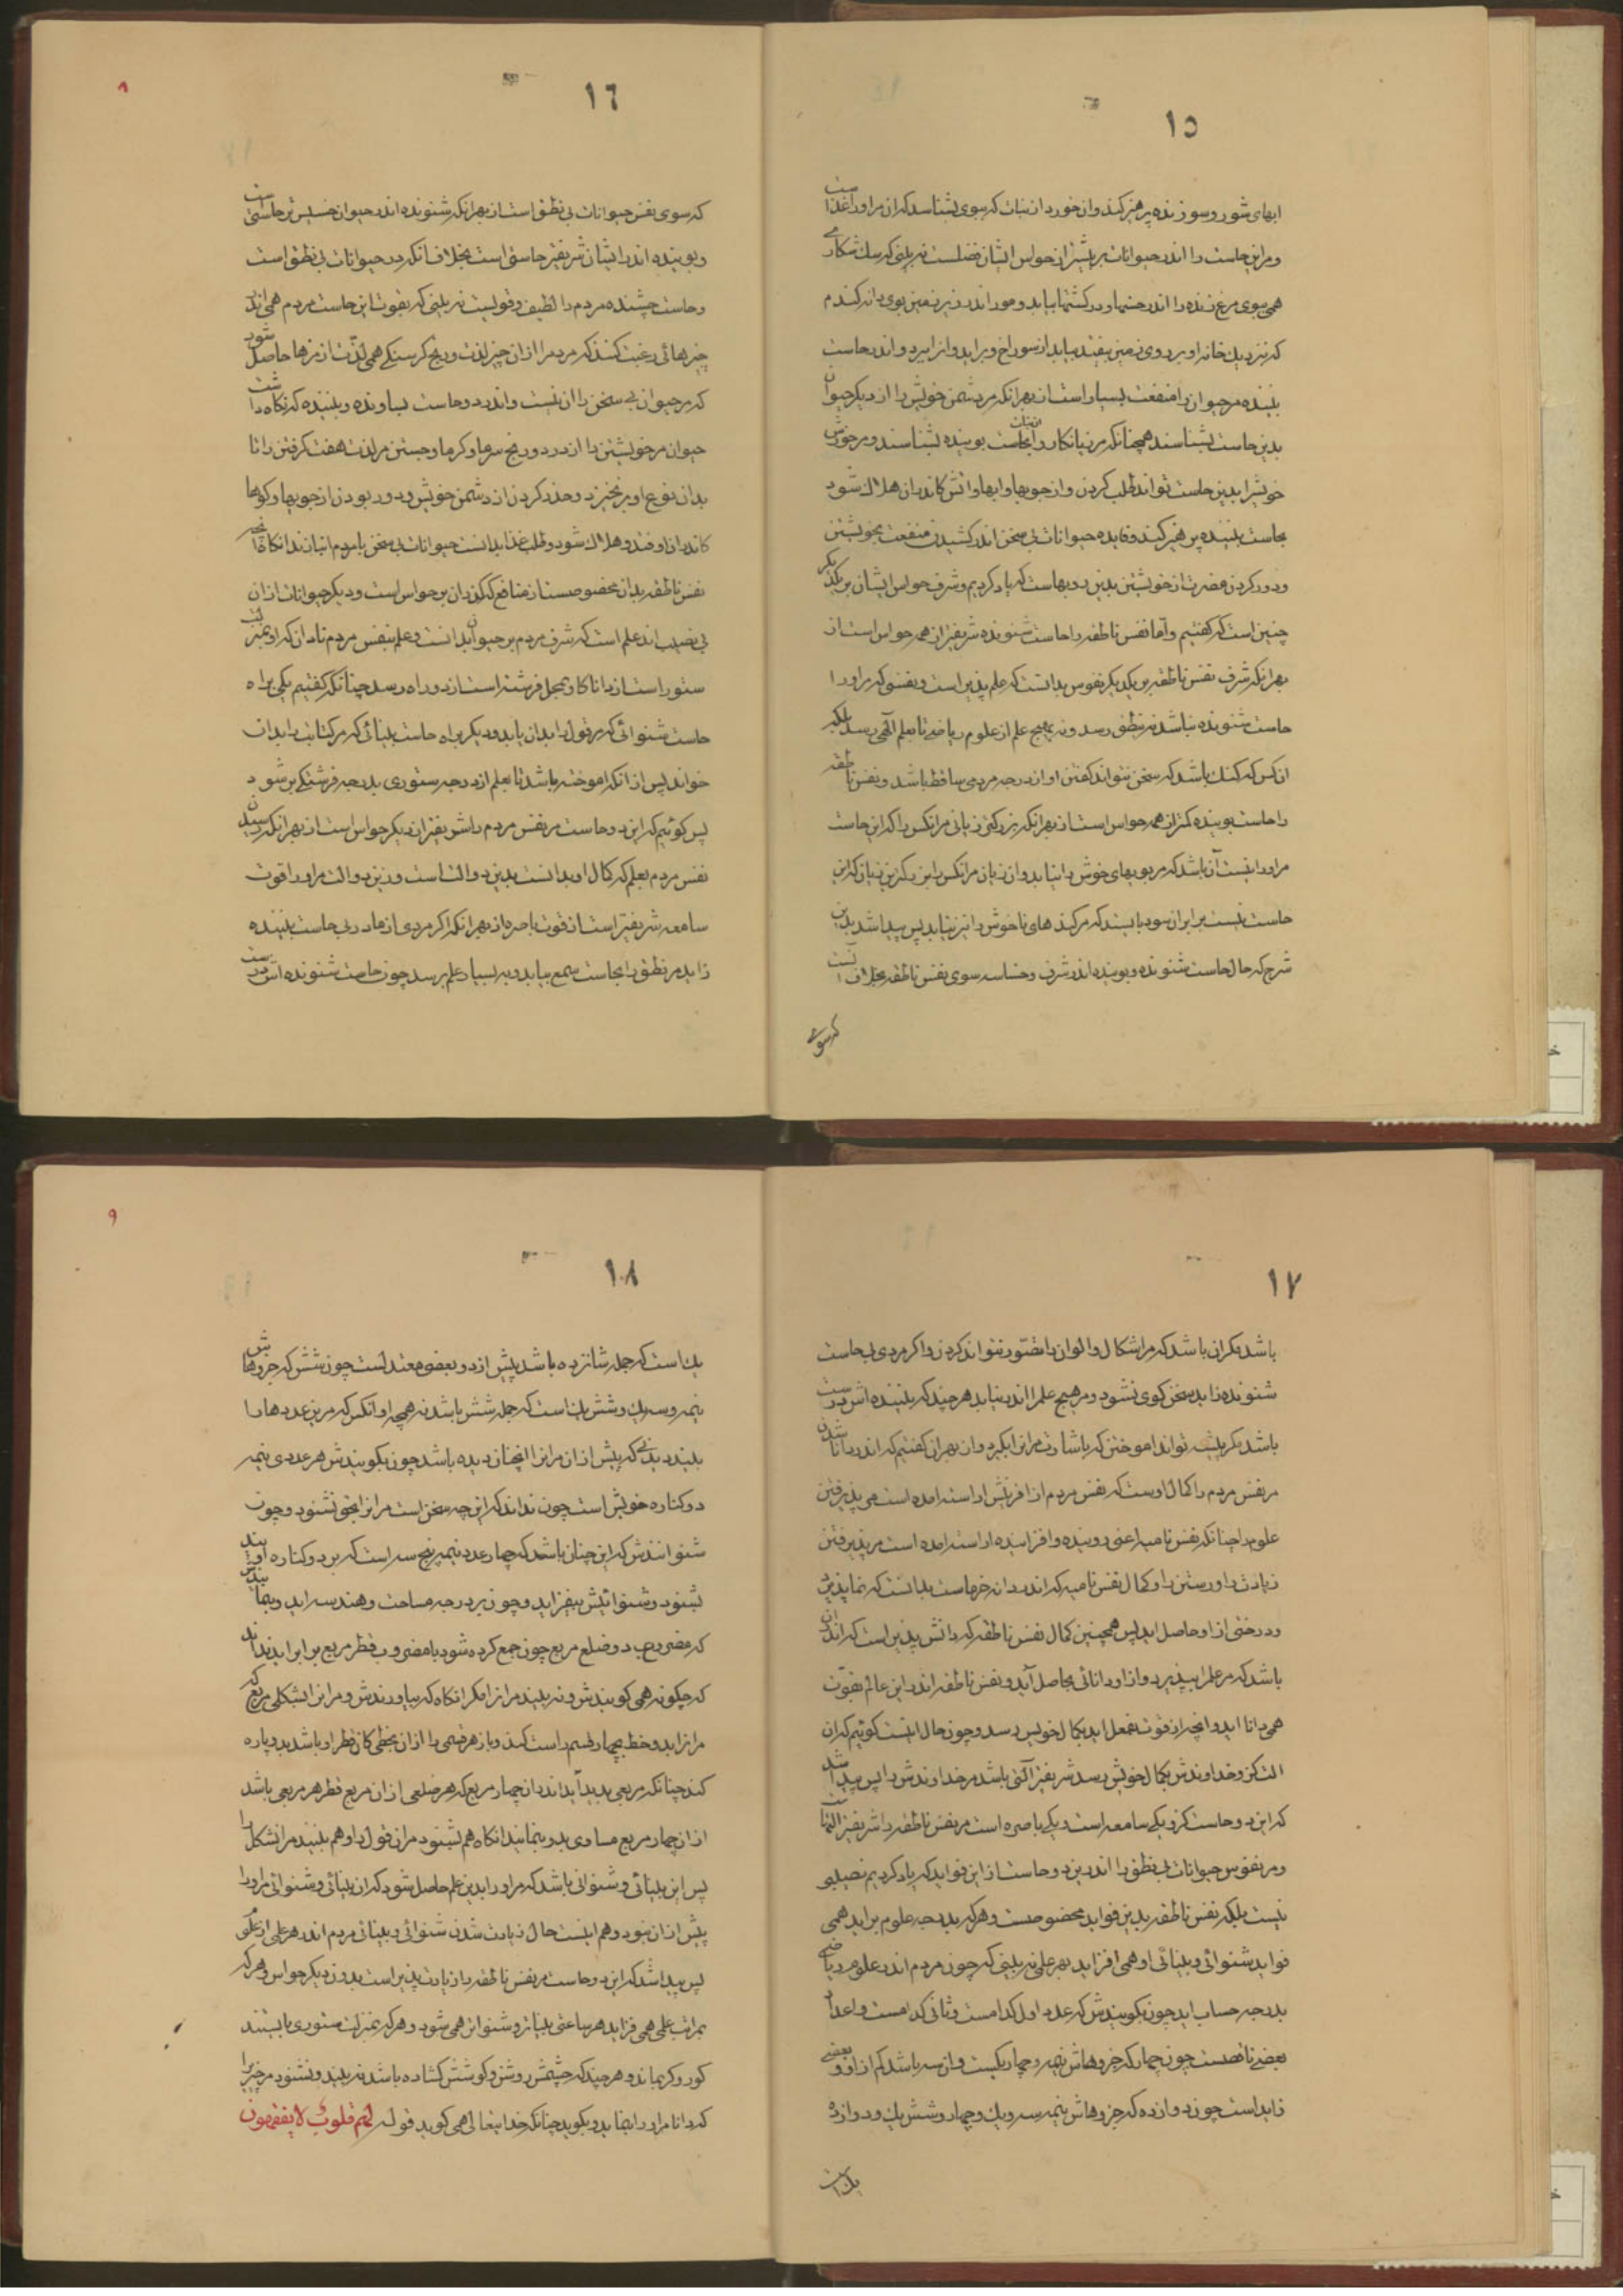 ١٥
ابهای شور و سوزنده پرهیز کند و ان خورد از نبات که سوی بشناسد که ان مر اورا غذاست
و مر این حاست را اندر حیوانات بر بیشتر از حواس ایشان فضلست نه بینی که سك شکاری
همی ببوی مرغ زنده را اندر حشیها و در کشتها بیابد و مور اندر زیر زمین بوی دانه کندم
که نزدیك خانه او بر روی زمین بیفتد بیابد از سوراخ و براید و انرا ببرد و اندر حاست
بیننده مر حیوان را منفعت بسیار است از بهر انکه مر دشمن خویش را از دیکر حیوان
بدین حاست بشناسند همچنانکه مر زیانکار را از نبات بحاست بوینده بشناسند و مر خورش
خویشرا بدین حاست تواند طلب کردن و از جویها و ابها و اتش کاندر ان هلاك شود
بحاست بیننده پرهیز کند و فایده حیوانات بی سخن اندر کشیدن منفعت بخویشتن
و دور کردن مضرت از خویشتن بدین رویهاست که یاد کردیم و شرف حواس ایشان بر یکدیکر
چنین است که کفتیم و اما نفس ناطقه را حاست شنونده شریفتر از همه حواس است از
بهر انکه شرف نفس ناطقه بر یکدیکر نفوس بدانست که علم پذیر است و نفسی که مر اورا
حاست شنونده نباشد نه بنطق رسد و نه بهیچ علم از علوم ریاضی تا بعلم الهی رسد بلکه
ان کس که کنك باشد که سخن نتواند کفتن او از درجه مردمی ساقط باشد و نفس ناطقه
را حاست بوینده کمتر از همه حواس است از بهر انکه بزرکتر زیانی مر انکس را که این حاست
مر اورا نیست آن باشد که مر بویهای خوش را نیابد و ان زیان مر انکس را بزرکترین زیان که این
حاست نیست برابر ان سود بایستد که مر کندهای ناخوش را نیز نیابد پس پیدا شد بدین
شرح که حال حاست شنونده و بوینده اندر شرف و خساست سوی نفس ناطقه بخلاف انست
که سوی
١٦
که سوی نفس حیوانات بی نطق است از بهر انکه شنونده اندر حیوان خسیس تر حاستی است
و بوینده اندر ایشان شریفتر حاستی است بخلاف انکه در حیوانات بی نطق است
و حاست چشنده مردم را لطیف و قویست نه بینی که بقوت این حاست مردم همی اندر
چیزهائی رغبت کنند که مردم را از ان چیز لذت و رنج کرسنکی همی لذت از مزها حاصل شود
که مر حیوان بی سخن را ان نیست و اندر دو حاست بساونده و بیننده که نکاه داشت
حیوان مر خویشتن را از درد و رنج سرما و کرما و جستن مر لذت جفت کرفتن را تا
بدان نوع او بر نخیزد و حذر کردن از دشمن خویش و دور بودن از جویها و کوهها
کاندر ان اوفتد و هلاك شود و طلب غذا بدانست حیوانات بی سخن با مردم انبازند انکاه انچه
نفس ناطقه بدان مخصوصست از منافع که کذر ان بر حواس است و دیکر حیوانات از ان
بی نصیب اند علم است که شرف مردم بر حیوان بدانست و علم بنفس مردم نادان که او بمنزلت
ستور است از دانا کاو بمحل فرشته است از دو راه رسد چنانکه کفتیم یکی براه
حاست شنوائی که مر قول را بدان یابد و دیکر براه حاست بینائی که مر کتابت را بدان
خواند پس از انکه اموخته باشد تا بعلم از درجه ستوری بدرجه فرشتکی بر شود
پس کوئیم که این دو حاست مر نفس مردم را شریفتر از دیکر حواس است از بهر انکه رسیدن
نفس مردم بعلم که کمال او بدانست بدین دو الت است و زین دو الت مر اورا قوت
سامعه شریفتر است از قوت باصره از بهر انکه اکر مردی از مادر بی حاست بیننده
زاید مر نطق را بحاست سمع بیابد و به بسیار علم برسد چون حاست شنونده اش درست
١٧
باشد مکر ان باشد که مر اشکال و الوان را تصور نتواند کردن و اکر مردی بی حاست
شنونده زاید سخن کوی نشود و مر هیچ علم را اندر نیابد هر چند که بیننده اش درست
باشد مکر پیشه تواند اموختن که باشارت مر انرا بکیرد و ان بهر ان کفتیم که اندر دانا شدن
مر نفس مردم را کمال اوست که نفس مردم از افرینش اراسته امده است مر پذیرفتن
علوم را چنانکه نفس نامیه اعنی روینده و افزاینده اراسته امده است مر پذیرفتن
زیادت را و رستن را و کمال نفس نامیه که اندر دانه خرماست بدانست که نما پذیرد
و درختی از او حاصل اید پس همچنین کمال نفس ناطقه که دانش پذیر است که اندر ان
باشد که مر علم را بپذیرد و از او دانائی بحاصل آید و نفس ناطقه اندر این عالم بقوت
همی دانا اید و انچه از قوت بفعل اید بکمال خویش رسد و چون حال اینست کوئیم که ان
الت کزو خداوندش بکمال خویش رسد شریفتر آلتی باشد مر خداوندش را پس پیدا شد
که این دو حاست کزو یکی سامعه است و یکی باصره است مر نفس ناطقه را شریفتر التهاست
و مر نفوس حیوانات بی نطق را اندر این دو حاست از این فواید که یاد کردیم نصیبی
نیست بلکه نفس ناطقه بدین فواید مخصوصست و هر که بدرجه علوم براید همی
فواید شنوائی و بینائی او همی افزاید بهر علمی نه بینی که چون مردم اندر علوم ریاضی
بدرجه حساب اید چون بکویندش که عدد اول کدامست و ثانی کدامست و اعداد
بعضی ناقصست چون چهار که جزوهاش نیمه و چهار یکیست و ان سه باشد کم از او و بعضی
زاید است چون دوازده که جزوهاش نیمه و سه یك و چهار و شش یك و دوازده
یك است
١٨
یك است که جمله شانزده باشد بیش از او و بعضی معتدلست چون شش که جزوهاش
نیمه و سه یك و شش یك است که جمله شش باشد نه همچو او انکس که مر این عددها را
بیند دیدنی که پیش از ان مر انرا انچنان ندیده باشد چون بکویندش هر عددی نیمه
دو کناره خویش است چون نداند که این چه سخن است مر انرا بحق نشنود و چون
شنوانندش که این چنان باشد که چهار عدد نیمه پنج سه است که بر دو کناره اویند
بشنود و شنوائیش بیفزاید و چون بر درجه مساحت و هندسه اید و بنمایندش
که مضروب دو ضلع مربع چون جمع کرده شود با مضروب قطر مربع برابر اید نداند
که چکونه همی کویندش و نه بیند مر انرا مکر انکاه که بیاورندش و مر انرا بشکلی مربع که
مر انرا بدو خط بچهار قسم راست کند و باز هر قسمی را از ان بخطی کان قطر او باشد بدو پاره
کند چنانکه مربعی پدید آید اندر ان چهار مربع که هر ضلعی از ان مربع قطر هر مربعی باشد
از ان چهار مربع مساوی بدو بنمایند انکاه هم بشنود مر ان قول را و هم بیند مر انشکل را
پس این بینائی و شنوائی باشد که مر اورا بدین علم حاصل شود که ان بینائی و شنوائی مر اورا
پیش از ان نبود و هم اینست حال زیادت شدن شنوائی و بینائی مردم اندر هر علمی از علمی
پس پیدا شد که این دو حاست مر نفس ناطقه را زیادت پذیر است بدون دیکر حواس و هر که
بمراتب علمی همی فزاید هر ساعتی بیناتر و شنواتر همی شود و هر که بمنزلت ستوری بایستد
کور و کر بماند و هر چند که چشمش روشن و کوشش کشاده باشد نه بیند و نشنود مر چیزرا
که دانا مر اورا بنماید و بکوید چنانکه خدایتعالی همی کوید قوله لهم قلوب لا یفقهون